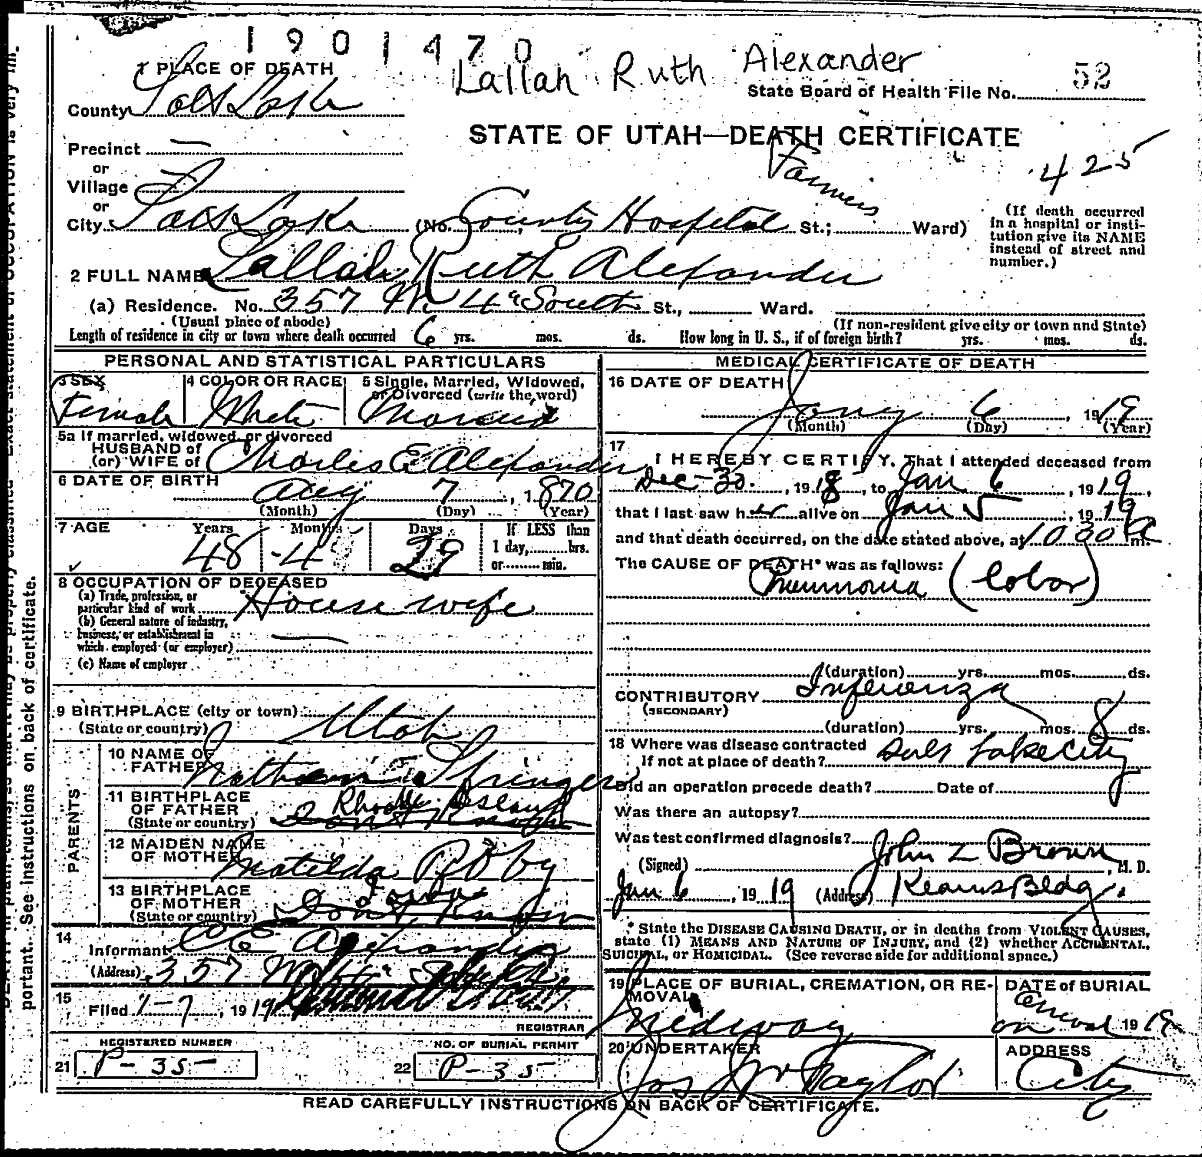 1901470
Lallah Ruth Alexander
1 PLACE OF DEATH
State Board of Health File No. 52
County Salt Lake
STATE OF UTAH—DEATH CERTIFICATE
Precinct —
or
Village —
or
425
City Salt Lake (No. County Hospital St.; Ward)
(If death occurred in a hospital or institution give its NAME instead of street and number.)
2 FULL NAME Lallah Ruth Alexander
(a) Residence. No. 357 W. 4th South St., Ward.
(Usual place of abode) (If non-resident give city or town and State)
Length of residence in city or town where death occurred 6 yrs. mos. ds. How long in U. S., if of foreign birth? yrs. mos. ds.
PERSONAL AND STATISTICAL PARTICULARS
3 SEX Female
4 COLOR OR RACE White
5 Single, Married, Widowed, or Divorced (write the word) Married
5a If married, widowed, or divorced
HUSBAND of
(or) WIFE of Charles E Alexander
6 DATE OF BIRTH Aug 7, 1870
(Month) (Day) (Year)
7 AGE Years 48 Months 4 Days 29
If LESS than
1 day, hrs.
or min.
8 OCCUPATION OF DECEASED
(a) Trade, profession, or
particular kind of work House wife
(b) General nature of industry,
business, or establishment in
which employed (or employer) —
(c) Name of employer
9 BIRTHPLACE (city or town)
(State or country) Utah
PARENTS
10 NAME OF
FATHER Springer
11 BIRTHPLACE
OF FATHER Rhode Island
(State or country) Don't Know
12 MAIDEN NAME
OF MOTHER Matilda Roby
13 BIRTHPLACE
OF MOTHER
(State or country) Don't Know
14
Informant C E Alexander
(Address) 357 W 4th
15
Filed 1-7, 1919
REGISTRAR
REGISTERED NUMBER
21 P-35
NO. OF BURIAL PERMIT
22 P-35
MEDICAL CERTIFICATE OF DEATH
16 DATE OF DEATH
Jany 6, 1919
(Month) (Day) (Year)
17
I HEREBY CERTIFY, That I attended deceased from
Dec-30, 1918, to Jan 6, 1919,
that I last saw her alive on Jan 5, 1919
and that death occurred, on the date stated above, at 10 30 a m.
The CAUSE OF DEATH* was as follows:
Pneumonia (lobar)
(duration) yrs. mos. ds.
CONTRIBUTORY Influenza
(SECONDARY)
(duration) yrs. mos. 8 ds.
18 Where was disease contracted
If not at place of death? Salt Lake City
Did an operation precede death? Date of
Was there an autopsy?
Was test confirmed diagnosis?
(Signed) John Z Brown, M. D.
Jan 6, 1919 (Address) Kearns Bldg.
* State the DISEASE CAUSING DEATH, or in deaths from VIOLENT CAUSES,
state (1) MEANS AND NATURE OF INJURY, and (2) whether ACCIDENTAL,
SUICIDAL, or HOMICIDAL. (See reverse side for additional space.)
19 PLACE OF BURIAL, CREMATION, OR REMOVAL
Midway
DATE of BURIAL
on arrival 1919
20 UNDERTAKER
Jos Wm Taylor
ADDRESS
City
READ CAREFULLY INSTRUCTIONS ON BACK OF CERTIFICATE.
portant. See instructions on back of certificate.